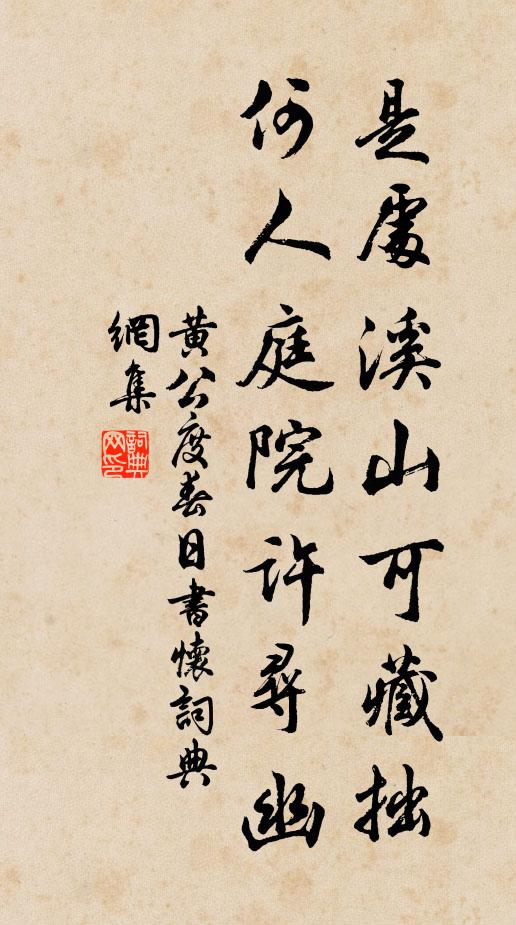 是處溪山可藏拙
何人庭院許尋幽
黃公度春日書懷詞典
網集
詞典網印